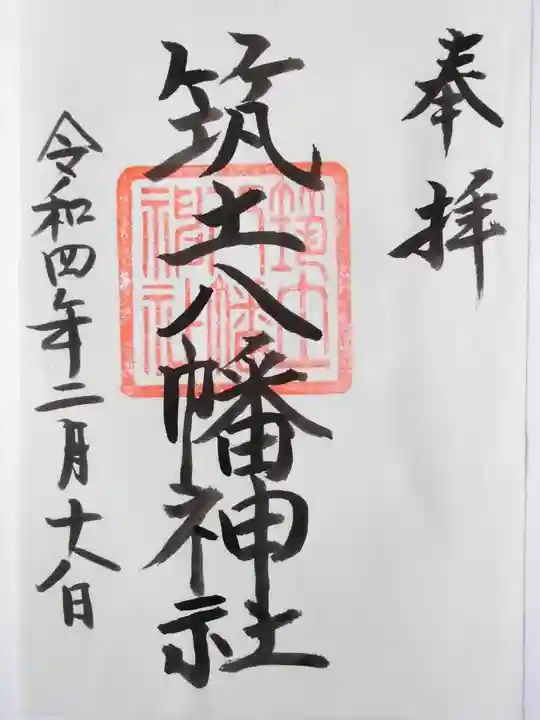 奉拝
筑土八幡神社
筑土八幡神社
令和四年二月十八日